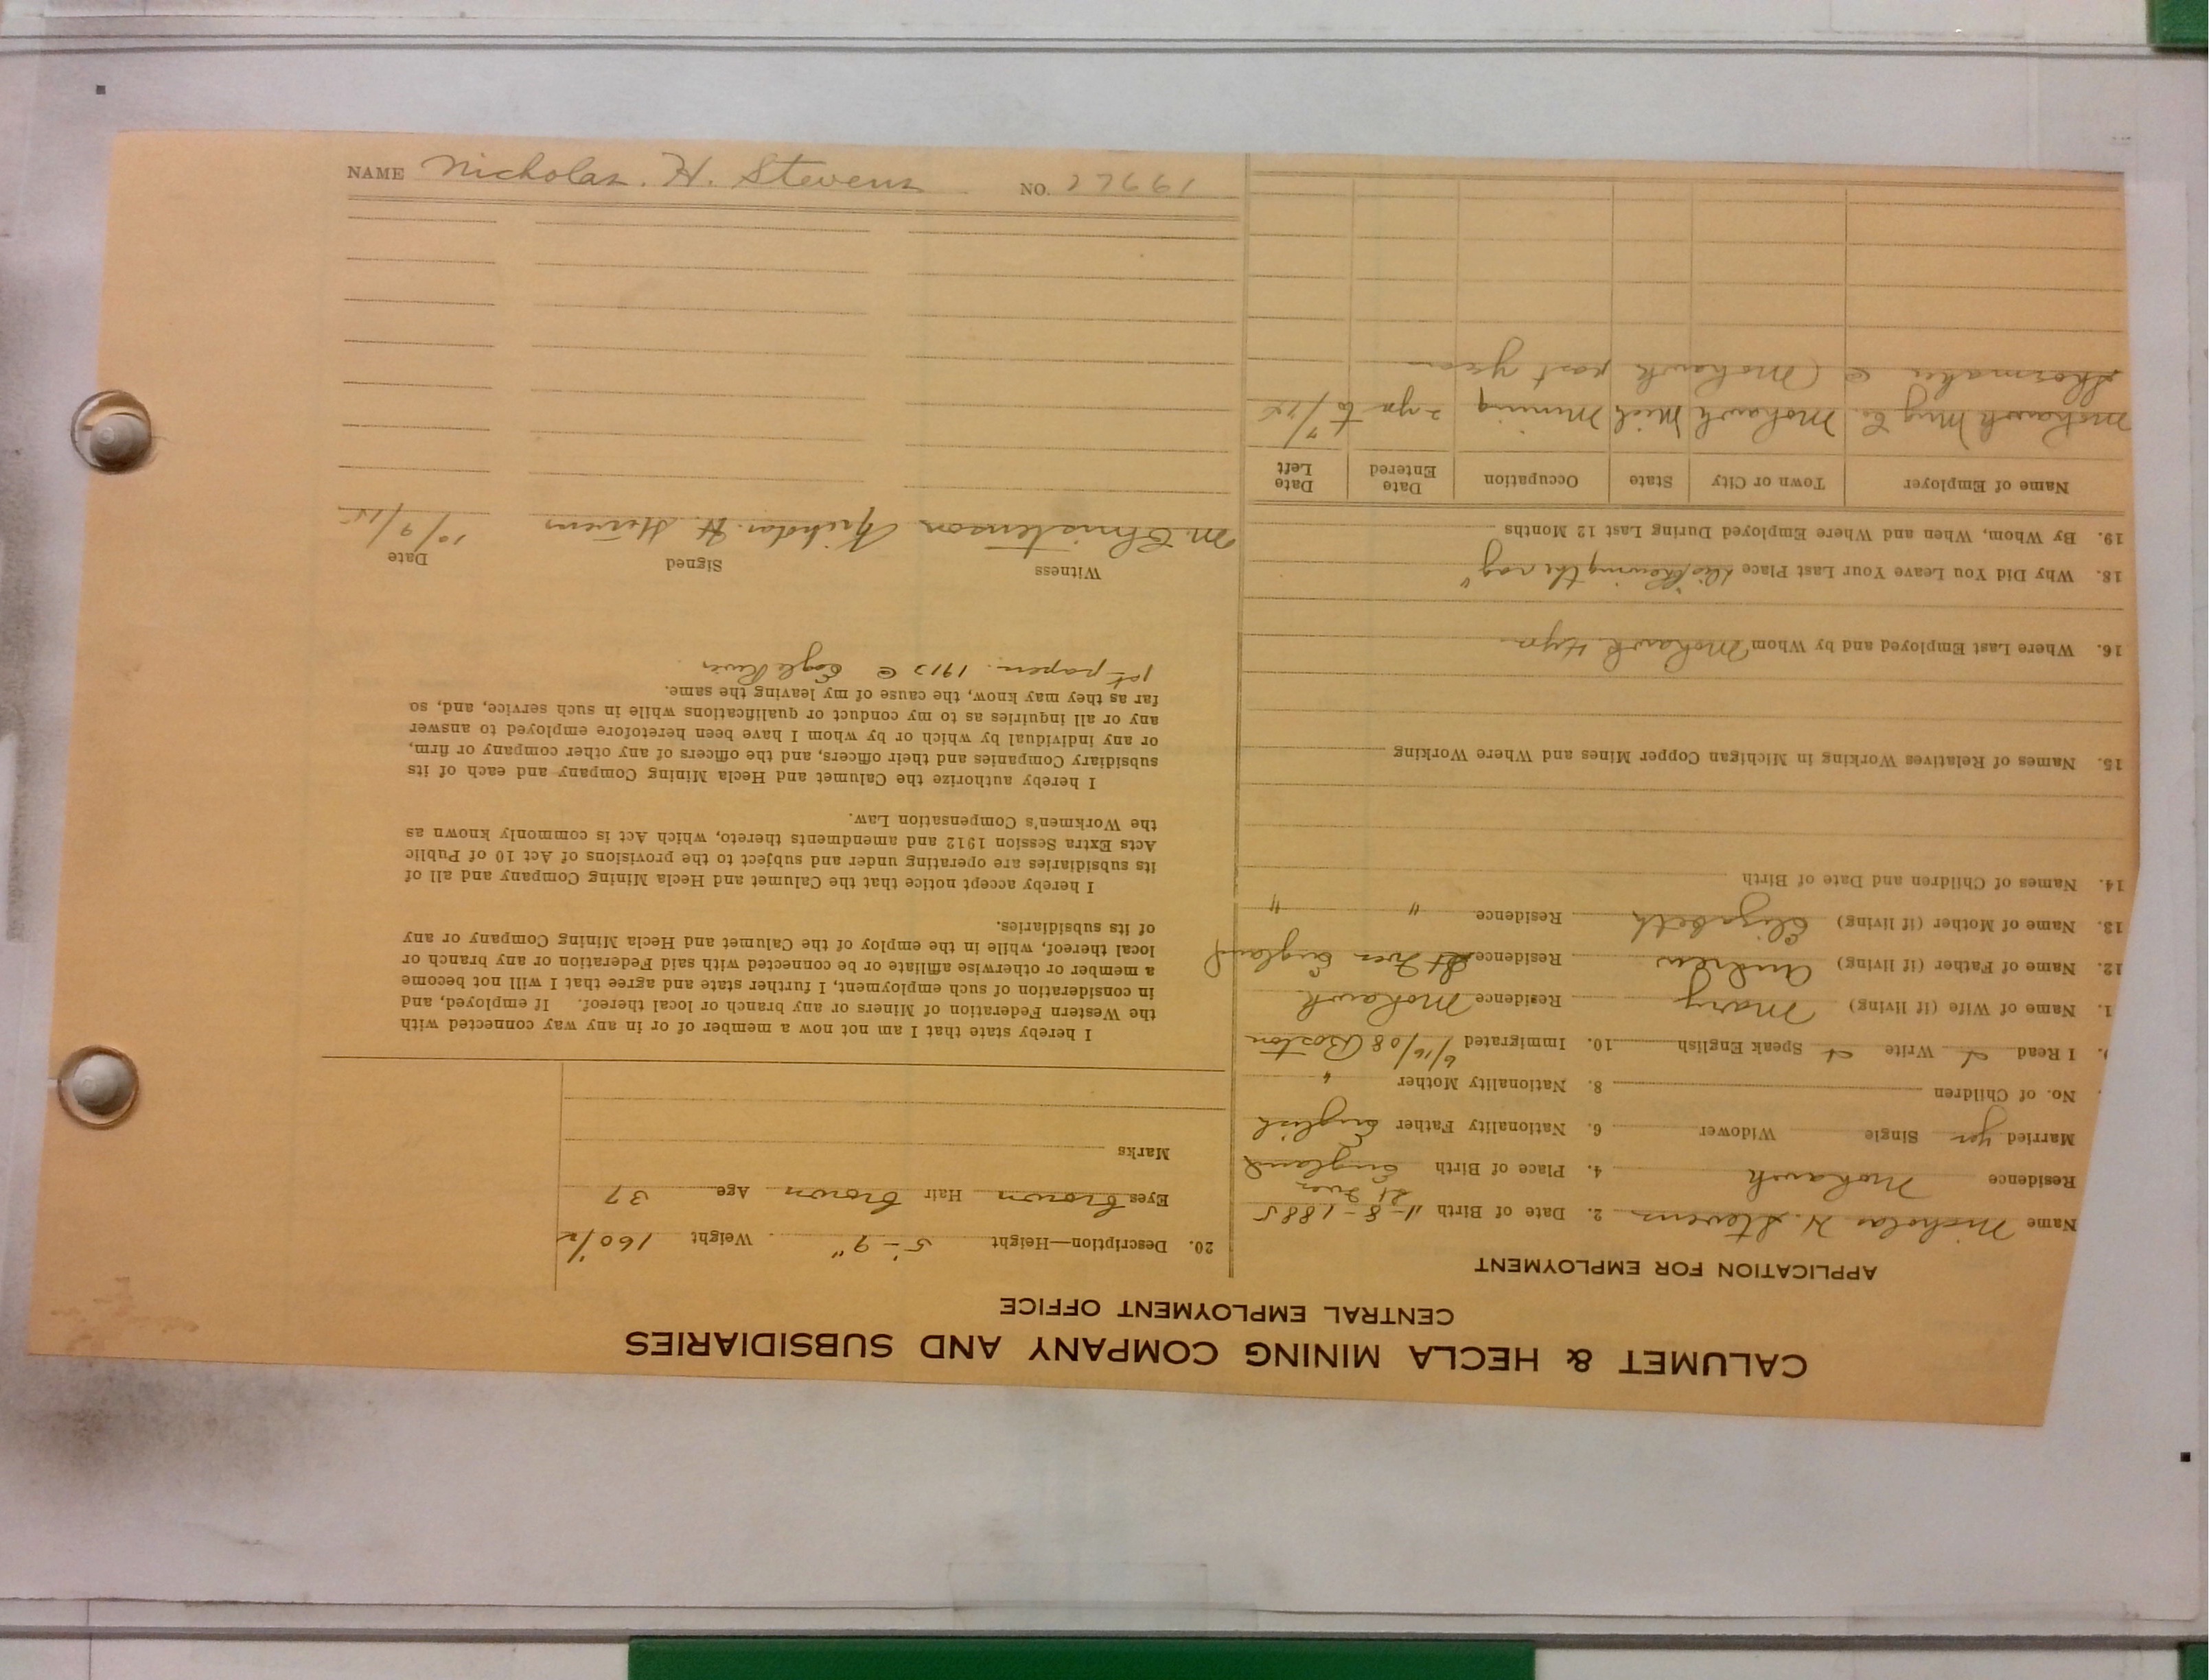 CALUMET & HECLA MINING COMPANY AND SUBSIDIARIES
CENTRAL EMPLOYMENT OFFICE
APPLICATION FOR EMPLOYMENT
Name Nicholas H. Stevens 2. Date of Birth 11-8-1885
St Ives
Residence Mohawk 4. Place of Birth England
Married yes Single Widower 6. Nationality Father English
No. of Children 8. Nationality Mother "
I Read Write Speak English 10. Immigrated 6/16/08 (Boston
1. Name of Wife (if living) Mary Residence Mohawk
12. Name of Father (if living) Andrew Residence St Ives England
13. Name of Mother (if living) Elizabeth Residence " "
14. Names of Children and Date of Birth
15. Names of Relatives Working in Michigan Copper Mines and Where Working
16. Where Last Employed and by Whom Mohawk
18. Why Did You Leave Your Last Place
19. By Whom, When and Where Employed During Last 12 Months
Name of Employer Town or City State Occupation Date Entered Date Left
Mohawk Mng Co. Mohawk Mich Mining 2 yrs to
Shoemaker @ Mohawk past year
20. Description—Height 5'-9" Weight 160
Eyes brown Hair brown Age 37
Marks
I hereby state that I am not now a member of or in any way connected with
the Western Federation of Miners or any branch or local thereof. If employed, and
in consideration of such employment, I further state and agree that I will not become
a member or otherwise affiliate or be connected with said Federation or any branch or
local thereof, while in the employ of the Calumet and Hecla Mining Company or any
of its subsidiaries.
I hereby accept notice that the Calumet and Hecla Mining Company and all of
its subsidiaries are operating under and subject to the provisions of Act 10 of Public
Acts Extra Session 1912 and amendments thereto, which Act is commonly known as
the Workmen's Compensation Law.
I hereby authorize the Calumet and Hecla Mining Company and each of its
subsidiary Companies and their officers, and the officers of any other company or firm,
or any individual by which or by whom I have been heretofore employed to answer
any or all inquiries as to my conduct or qualifications while in such service, and, so
far as they may know, the cause of my leaving the same.
1st papers 1912 @ Eagle River
Witness Signed Date
M. Christenson Nicholas H. Stevens 10/9/
NAME Nicholas. H. Stevens NO. 27661